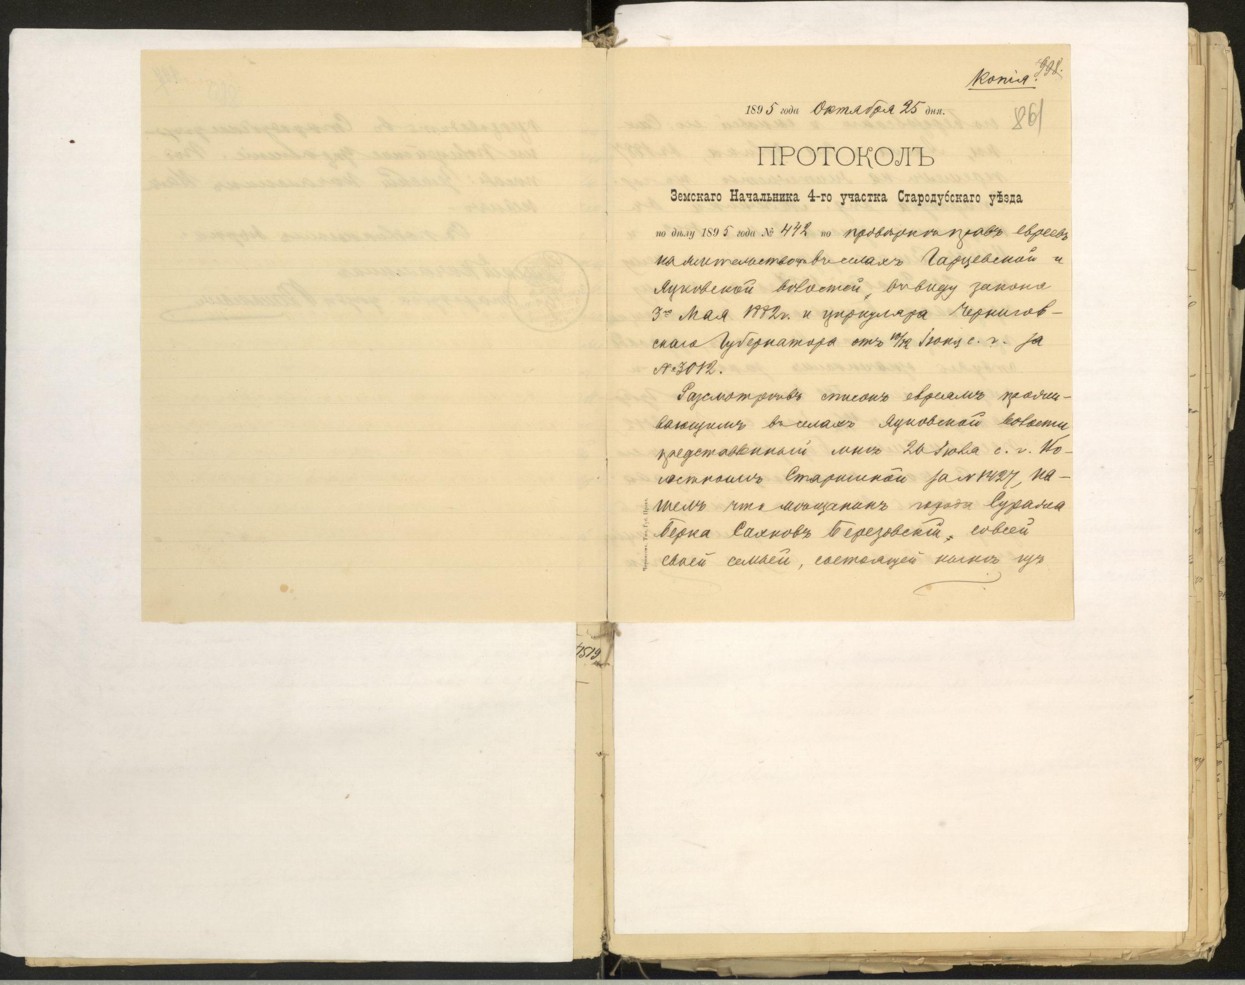 Копія.
1895 года Октября 25 дня.
861
ПРОТОКОЛЪ
Земскаго Начальника 4-го участка Стародубскаго уѣзда
по дѣлу 1895 года № 442 по провѣркѣ правъ евреевъ
на жительство въ селахъ Гарцевской и
Яцковской волостей, въ виду закона
3го Мая 1882 г. и циркуляра Чернигов-
скаго Губернатора отъ Іюня с. г. за
№ 3012.
Разсмотрѣвъ списокъ евреямъ прожи-
вающимъ въ селахъ Яцковской волости
представленный мнѣ 26 Іюля с. г. Во-
лостнымъ Старшиной за № 1427, на-
шелъ что мѣщанинъ города Суража
Берка Березовскій, со всей
своей семьей, состоящей нынѣ изъ
1519